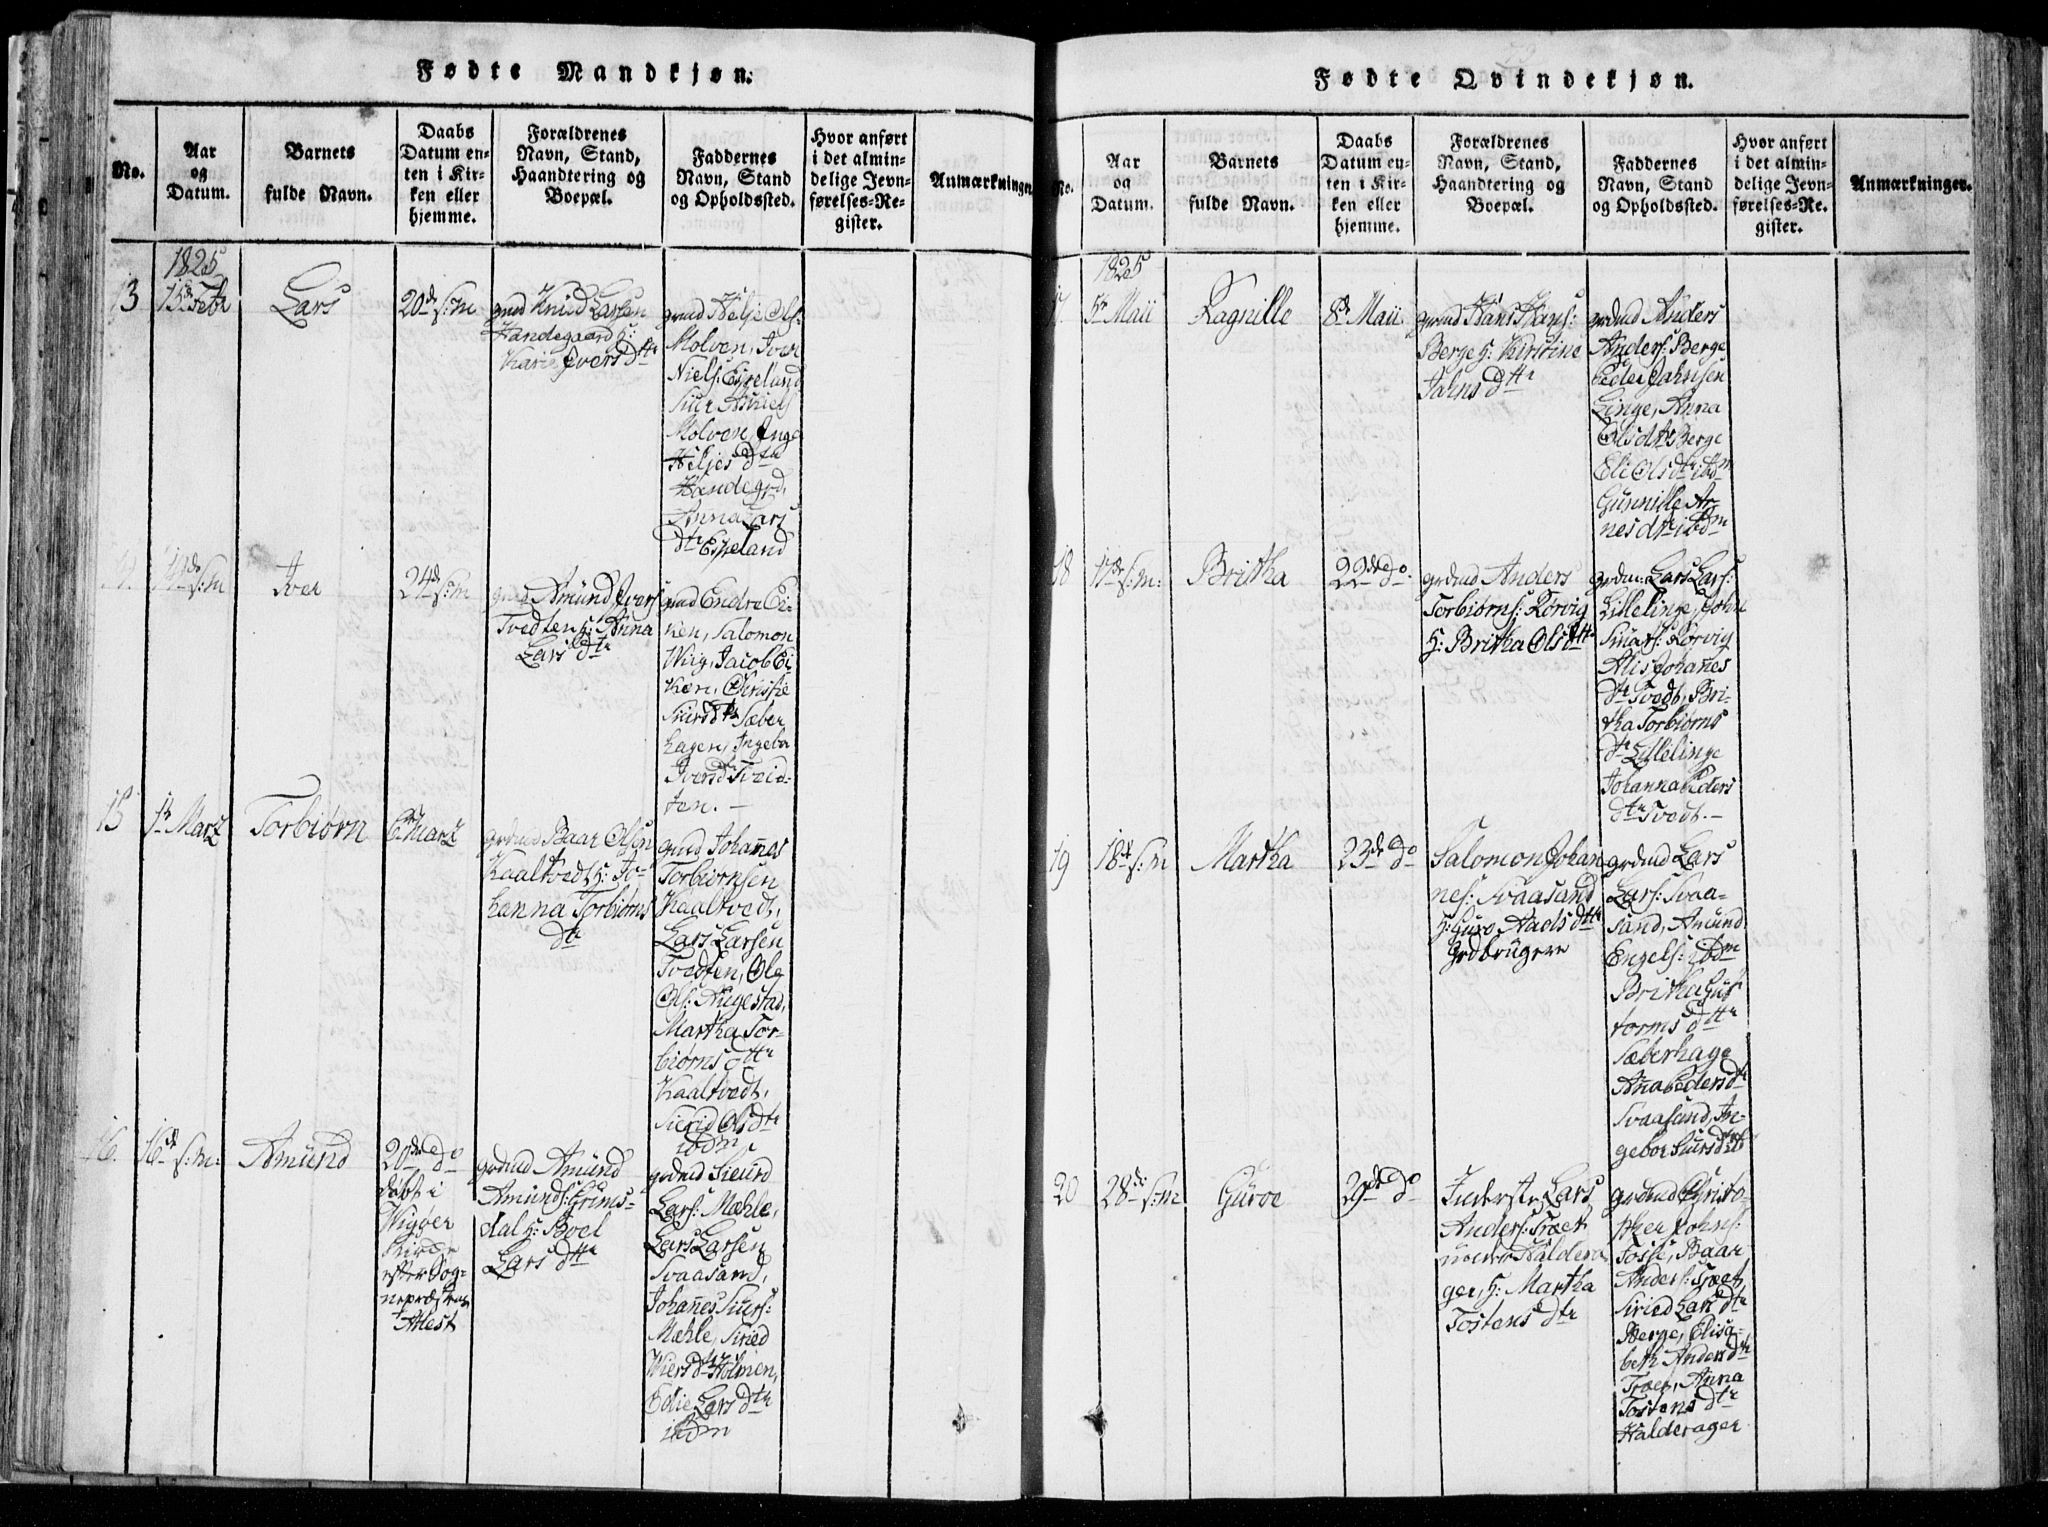 Fødte Mandkjøn.
No.
Aar
og
Datum.
Barnets
fulde Navn.
Daabs
Datum en-
ten i Kir-
ken eller
hjemme.
Forældrenes
Navn, Stand,
Haandtering og
Boepæl.
Faddernes
Navn, Stand
og Opholdssted.
Hvor anført
i det almin-
delige Jevn-
førelses-Re-
gister.
Anmærkninger
1825
13
15de Febr
Lars
20de s:m
gmd Knud Larsen
Handegaard h:
Karie Ivers dtr
gmd Helje Ols:
Molven, Iver
Niels: Espeland
Siur Amiels
Molven, Inge
Heljes dtr
Handegrd,
Anna Lars
dtr Espeland
14de s:m
Iver
24de s:m
gmd Amund Ivers
Tvedten h: Anna
Lars dtr
gmd Endre Ei-
ken, Salomon
Wiig, Jacob Ei-
ken, Christie
Siurs dtr Sæber
hagen, Ingebor
Ivers dtr Tveid-
ten. -
15
1ste Martz
Torbiørn
6te Martz
grdmd Baar Olsen
Kaaltvedt h: Jo-
hanna Torbiørns
dtr
gmd Johannes
Torbiørnsen
Kaaltvedt,
Lars Larsen
Tvedten, Ole
Ols: Augestad,
Martha Tor-
biørns dtr
Kaaltvedt,
Sierid Ols dtr
ibdm
16.
16de s:m:
Amund
20de do
døbt i
Wigøer
Kirke
efter Sog-
nepræstens
Attest
grdmd Amund
Amunds: Grims-
dal h: Boel
Lars dtr
grdmd Sieurd
Lars: Mæhle,
Lars Larsen
Svaasand,
Johannes Siurs:
Mæhle, Siried
Wiers dtr Holmen,
Edie Lars dtr
ibdm
Fødte Qvindekjøn.
No.
Aar
og
Datum.
Barnets
fulde Navn.
Daabs
Datum en-
ten i Kir-
ken eller
hjemme.
Forældrenes
Navn, Stand,
Haandtering og
Boepæl.
Faddernes
Navn, Stand
og Opholdssted.
Hvor anført
i det almin-
delige Jevn-
førelses-Re.
gister.
Anmærkninger.
1825
17
5te Maii
Ragnille
8de Maii
grdmd Hans Hans:
Berge h: Kirstine
Jahns dtr
grdmd Anders
Anders: Berge
Peder Jahnsen
Linge, Anna
Olsdtr Berge
Eli Olsdtr ibdm
Gunnille Ar
nesdtr ibdm
18
17de s:m:
Britha
22de do
grdmd Anders
Torbiørns: Rørvig
h: Britha Olsdtr
grdm: Lars Lars:
Lillelinge, John
Smars: Rørvig
Alis Johannes
dtr Tvedt, Bri-
tha Torbiørns
dtr Lillelinge
Johanna Peders
dtr Tvedt. -
19
18de s:m
Martha
23de do
Salomon Johan
nes: Svaasand
h: Guro Aads dtr
grdbrugere
grdmd Lars
Lars: Svaa-
sand, Amund
Engels: ibdm
Britha Gut
torms dtr
Sæberhage
Anna Peders dtr
Svaasand, In-
gebor Siurs dtr ib
20
28de s:m
Guroe
29de do
Inderste Lars
Anders: Træet
under Haldera
ger, h: Martha
Tostens dtr
grdmd Christo-
pher Johns:
Tosse, Baar
Anders: Træet,
Siried Lars dtr
Berge, Elisa-
beth Anders dtr
Træet, Anna
Tostens dtr
Halderager